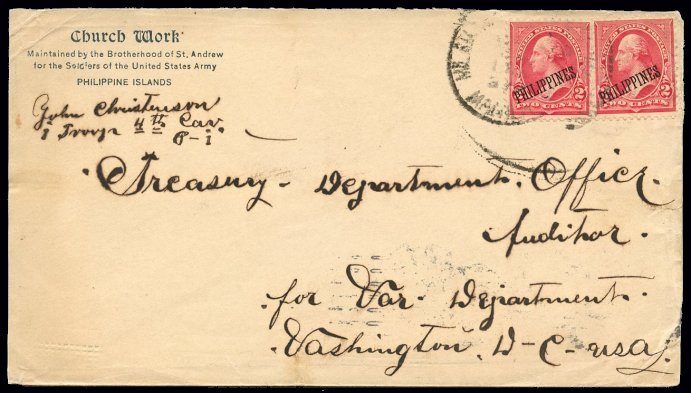 Church Work
Maintained by the Brotherhood of St. Andrew
for the Soldiers of the United States Army
PHILIPPINE ISLANDS
John Christenson
I Troop 4th Cav
P-i
Treasury - Department. Office.
Auditor.
for War. Department.
Washington. D-C- USA.
UNITED STATES POSTAGE
PHILIPPINES
2 2
TWO CENTS
UNITED STATES POSTAGE
PHILIPPINES
2 2
TWO CENTS